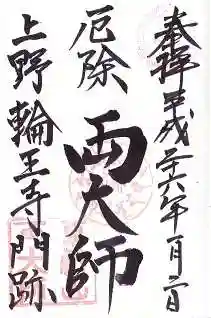 奉拝 平成二十六年一月二日
厄除
両大師
上野輪王寺門跡